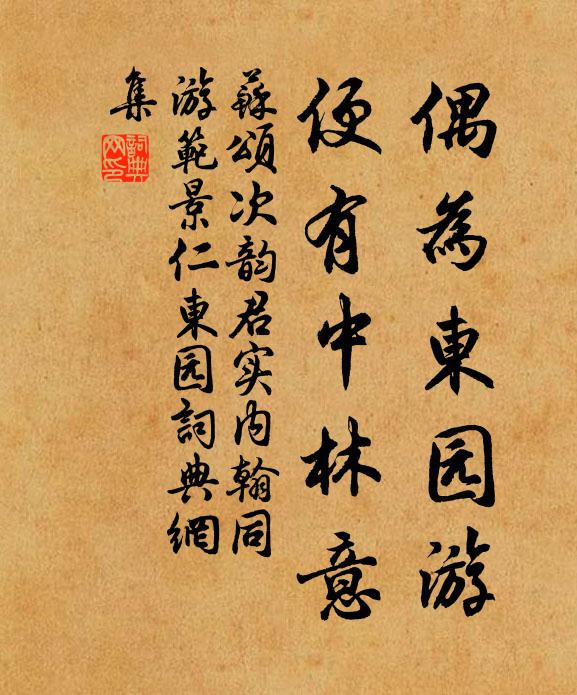 偶為東园游
便有中林意
蘇頌次韵君实内翰同
游範景仁東园詞典網
集
詞典网印